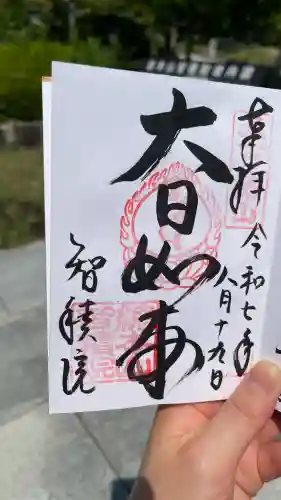 奉拝
令和七年
八月十九日
大日如来
智積院